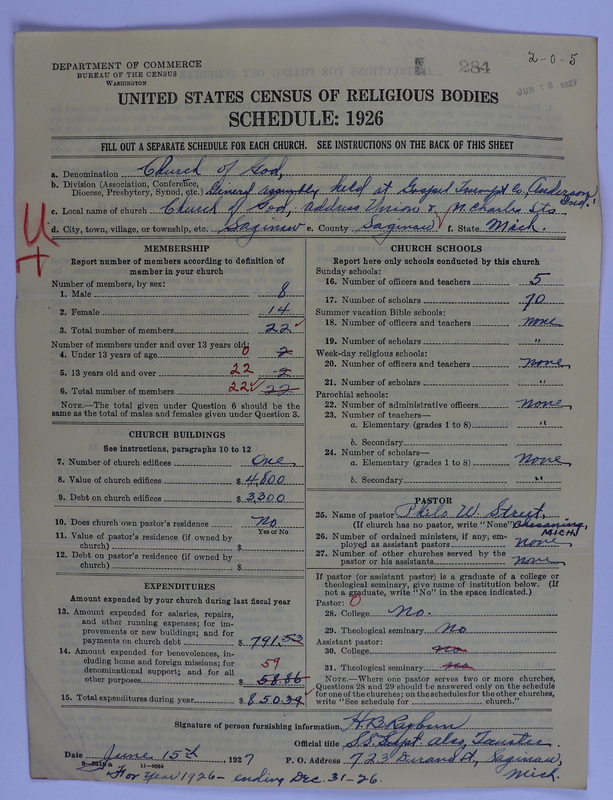 2-0-5
DEPARTMENT OF COMMERCE
BUREAU OF THE CENSUS
WASHINGTON
284
JUN 8 1927
UNITED STATES CENSUS OF RELIGIOUS BODIES
SCHEDULE: 1926
FILL OUT A SEPARATE SCHEDULE FOR EACH CHURCH. SEE INSTRUCTIONS ON THE BACK OF THIS SHEET
a. Denomination Church of God,
b. Division (Association, Conference, Diocese, Presbytery, Synod, etc.) General assembly held at Gospel Trumpet Co, Anderson Ind.
c. Local name of church Church of God, address Union & N. Charles Sts
d. City, town, village, or township, etc. Saginaw e. County Saginaw f. State Mich.
U
+
MEMBERSHIP
Report number of members according to definition of
member in your church
Number of members, by sex:
1. Male 8
2. Female 14
3. Total number of members 22
Number of members under and over 13 years old:
4. Under 13 years of age 0 2
5. 13 years old and over 22 2
6. Total number of members 22 22
NOTE.—The total given under Question 6 should be the
same as the total of males and females given under Question 3.
CHURCH BUILDINGS
See instructions, paragraphs 10 to 12
7. Number of church edifices One
8. Value of church edifices $ 4,800
9. Debt on church edifices $ 3,300
10. Does church own pastor's residence No
Yes or No
11. Value of pastor's residence (if owned by
church) $
12. Debt on pastor's residence (if owned by
church) $
EXPENDITURES
Amount expended by your church during last fiscal year
13. Amount expended for salaries, repairs,
and other running expenses; for im-
provements or new buildings; and for
payments on church debt $ 791.53
14. Amount expended for benevolences, in-
cluding home and foreign missions; for
denominational support; and for all
other purposes $ 59 58.86
15. Total expenditures during year $ 850.39
CHURCH SCHOOLS
Report here only schools conducted by this church
Sunday schools:
16. Number of officers and teachers 5
17. Number of scholars 70
Summer vacation Bible schools:
18. Number of officers and teachers none
19. Number of scholars "
Week-day religious schools:
20. Number of officers and teachers none
21. Number of scholars "
Parochial schools:
22. Number of administrative officers none
23. Number of teachers—
a. Elementary (grades 1 to 8) "
b. Secondary
24. Number of scholars—
a. Elementary (grades 1 to 8) None
b. Secondary "
PASTOR
25. Name of pastor Philo W. Street,
(If church has no pastor, write "None") Chesaning, MICH
26. Number of ordained ministers, if any, em-
ployed as assistant pastors none
27. Number of other churches served by the
pastor or his assistants none
If pastor (or assistant pastor) is a graduate of a college or
theological seminary, give name of institution below. (If
not a graduate, write "No" in the space indicated.)
Pastor: 0
28. College No.
29. Theological seminary No
Assistant pastor:
30. College no
31. Theological seminary no
NOTE.—Where one pastor serves two or more churches,
Questions 28 and 29 should be answered only on the schedule
for one of the churches; on the schedules for the other churches,
write "See schedule for church."
Signature of person furnishing information H B Rayburn
Official title S.S. Supt. also Trustee
Date June 15th 1927 P. O. Address 723 Durand St, Saginaw, Mich.
11-9064
For Year 1926 - ending Dec. 31-26.